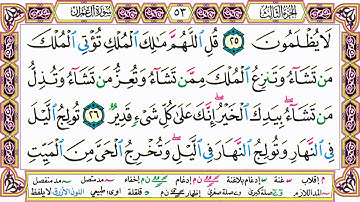 الجزء الثالث ٥٣ سورة آل عمران
لَا يُظْلَمُونَ ٢٥ قُلِ اللَّهُمَّ مَالِكَ الْمُلْكِ تُؤْتِي الْمُلْكَ
مَن تَشَاءُ وَتَنزِعُ الْمُلْكَ مِمَّن تَشَاءُ وَتُعِزُّ مَن تَشَاءُ وَتُذِلُّ
مَن تَشَاءُ بِيَدِكَ الْخَيْرُ إِنَّكَ عَلَىٰ كُلِّ شَيْءٍ قَدِيرٌ ٢٦ تُولِجُ اللَّيْلَ
فِي النَّهَارِ وَتُولِجُ النَّهَارَ فِي اللَّيْلِ وَتُخْرِجُ الْحَيَّ مِنَ الْمَيِّتِ